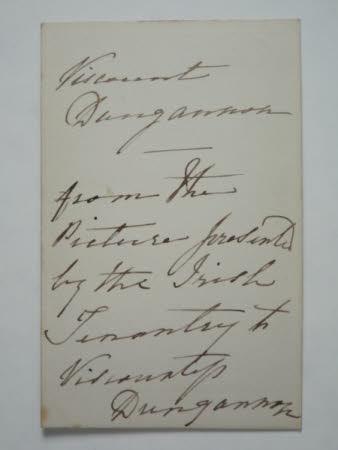 Viscount
Dungannon
from the
Picture presented
by the Irish
Tenantry to
Viscountess
Dungannon